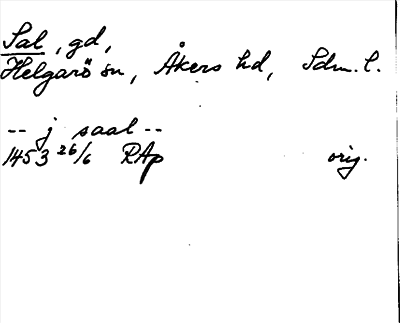 Sal, gd,
Helgarö sn, Åkers hd, Sdm. l.
-- j saal --
1453 26/6 RAp orig.